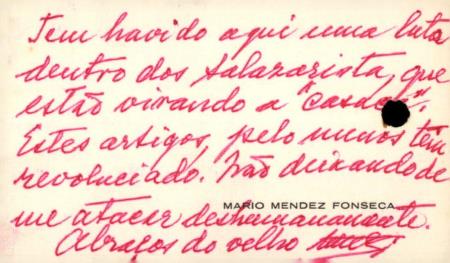 Tem havido aqui uma luta
dentro dos Salazarista, que
estão virando a "casaca".
Estes artigos, pelo menos têm
revoluciado. Não deixando de
MARIO MENDEZ FONSECA
me atacar deshumanamente.
Abraços do velho